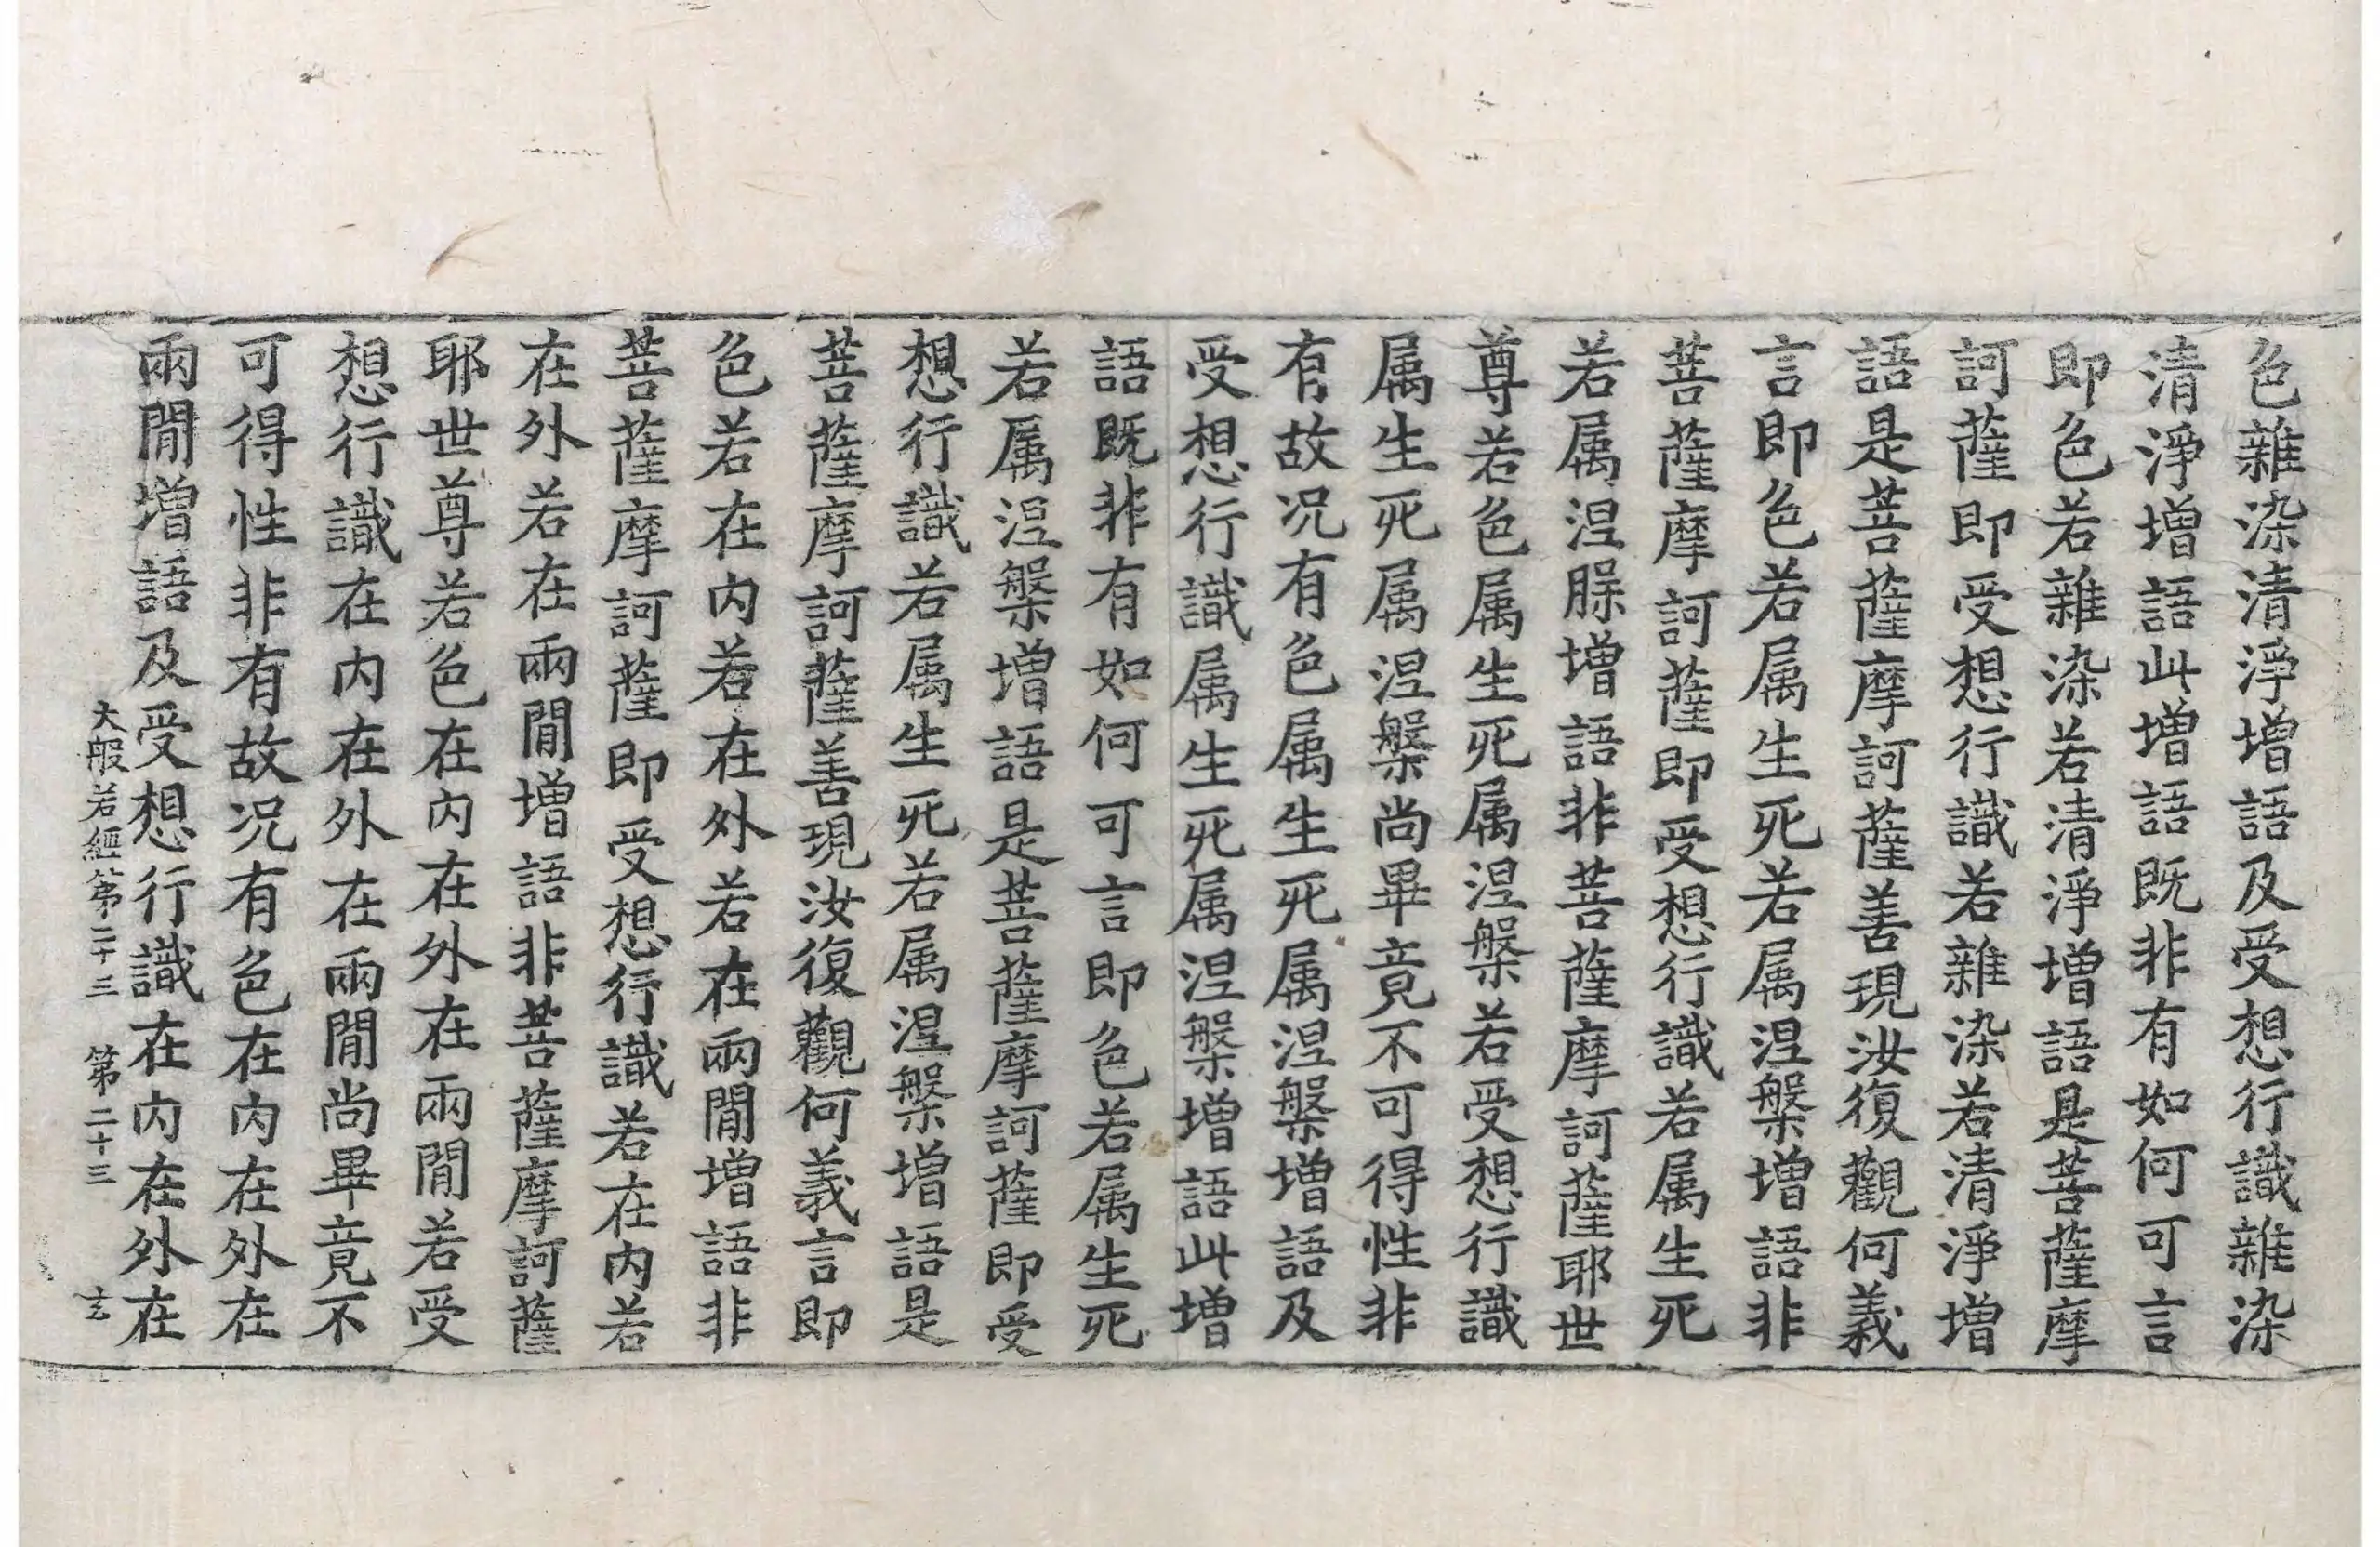 色雜染清淨增語及受想行識雜染
清淨增語此增語既非有如何可言
即色若雜染若清淨增語是菩薩摩
訶薩即受想行識若雜染若清淨增
語是菩薩摩訶薩善現汝復觀何義
言即色若属生死若属涅槃增語非
菩薩摩訶薩即受想行識若属生死
若属涅槃增語非菩薩摩訶薩耶世
尊若色属生死属涅槃若受想行識
属生死属涅槃尚畢竟不可得性非
有故况有色属生死属涅槃增語及
受想行識属生死属涅槃增語此增
語既非有如何可言即色若属生死
若属涅槃增語是菩薩摩訶薩即受
想行識若属生死若属涅槃增語是
菩薩摩訶薩善現汝復觀何義言即
色若在内若在外若在兩閒增語非
菩薩摩訶薩即受想行識若在内若
在外若在兩閒增語非菩薩摩訶薩
耶世尊若色在内在外在兩閒若受
想行識在内在外在兩閒尚畢竟不
可得性非有故况有色在内在外在
兩閒增語及受想行識在内在外在
大般若經第二十三 第二十三 玄